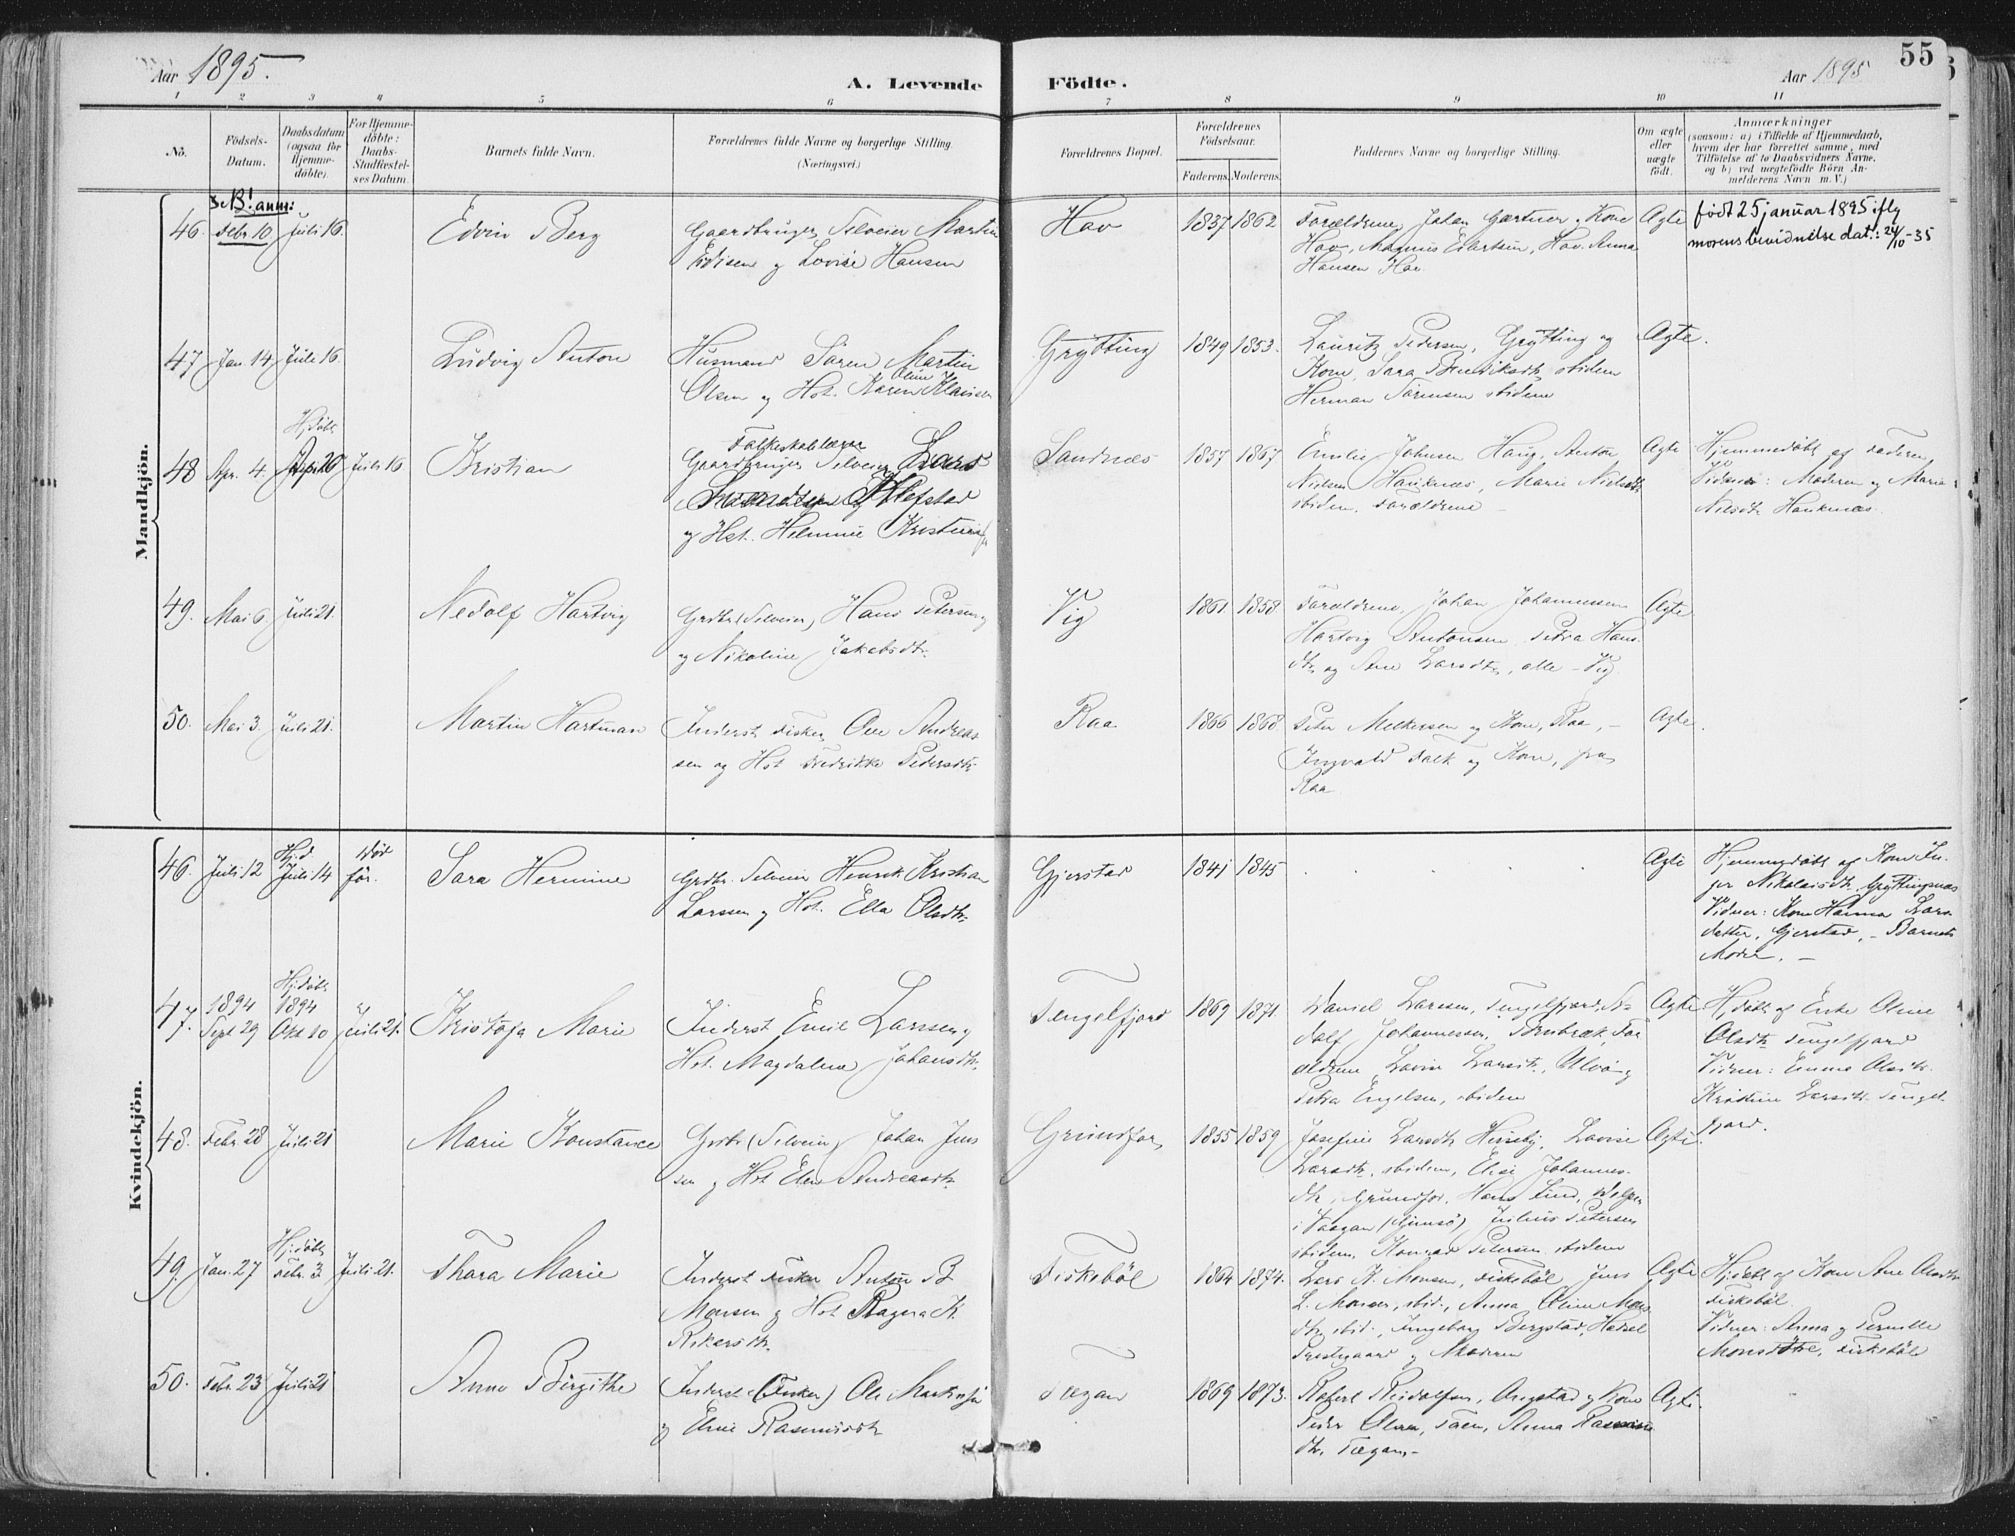 Aar 1895.
A. Levende Födte.
Aar 1895
55
1 2 3 4 5 6 7 8 9 10 11
No.
Födsels-Datum.
Daabsdatum (ogsaa för Hjemme-döbte).
For Hjemme-döbte: Daabs-Stadfæstel-ses Datum.
Barnets fulde Navn.
Forældrenes fulde Navne og borgerlige Stilling.
(Næringsvei.)
Forældrenes Bopæl.
Forældrenes Födselsaar.
Faderens. Moderens.
Faddernes Navne og borgerlige Stilling.
Om ægte eller uægte födt.
Anmærkninger
(saasom: a) i Tilfælde af Hjemmedaab,
hvem der har forrettet samme, med
Tilföielse af to Daabsvidners Navne,
og b) ved uægtefödte Börn An-
melderens Navn m. V.)
Mandkjön.
Se B! anm:
46. Febr. 10 Juli 16. Edvin Berg Gaardbruger, Selveier Martin
Edisen og Lovise Hansen
Hov 1837 1862 Forældrene, Johan Gærtner og Kone
Hov, Magnus Eilertsen, Hov. Anna
Hansen Hov
Ægte født 25 januar 1895 iflg
morens bevidnelse dat.: 24/10-35
47 Jan. 14 Juli 16. Ludvig Anton Husmand Sören Martin
Olsen og Hst. Karen Oline Klausen
Grytting 1849 1853. Lauritz Pedersen, Grytting og
Kone, Sara Bendiksdtr ibidem
Herman Sörensen ibidem
Ægte.
48 Apr. 4 Hjdöbt April 20 Juli 16 Kristian Folkeskolelærer
Gaardbruger Selveier Lars
Klefstad
og Hst. Helmine Kristine
Sandnæs 1857 1867 Emilie Johnsen Haug, Anton
Nielsen Hauknæs, Marie Nielsdtr
ibidem, Forældrene
Ægte Hjemmedöbt af Faderen
Vidner: Moderen og Marie
Nilsdtr Hauknæs.
49. Mai 6 Juli 21. Nedolf Hartvig Grdbr (Selveier) Hans Petersen
og Nikoline Jakobsdtr.
Vig 1861 1858 Forældrene, Johan Johannessen
Hartvig Antonsen, Petra Hans
dtr og Ane Larsdtr, alle – Vig
Ægte
50. Mai 3. Juli 21. Martin Hartman Inderst Fisker Ole Andreas
sen og Hst Fredrikke Pedersdtr
Raa 1866 1868 Peter Melkersen og Kone, Raa, –
Ingvald Falk og Kone, fra
Raa
Ægte.
Kvindekjön.
46. Juli 12 Hjd. Juli 14 död för. Sara Hermine Grdbr. Selveier Henrik Kristian
Larssen og Hst. Ella Olsdtr.
Gjerstad 1841 1845 Ægte Hjemmedöbt af Kone In-
ger Nikolaisdtr Gryttingsnæs
Vidner: Kone Hanna Lars
datter, Gjerstad, – Barnets
Moder. –
47. 1894 Sept 29 Hjdöbt 1894 Okt 10 Juli 21. Kristofa Marie Inderst Emil Larssen og
Hst. Magdalena Johansdtr.
Fængelfjord 1869 1871. Daniel Larssen, Fengelfjord,
dolf Johannessen,
ældrene Lovise Larsdtr, Ulvö og
Petra Engelsen, ibidem
Ægte Hjdöbt af Enke Oline
Olsdtr Fengelfjord
Vidner: Emma Olsdtr.
Kristine Larsdtr Fengel
fjord.
48. Febr. 28 Juli 21 Marie Konstance Grdbr (Selveier) Johan Jens
sen og Hst Elen Andreasdtr.
Grundfor 1855 1859 Josefine Larsdtr Husby, Lovise
Larsdtr. ibidem, Elise Johannes-
dtr, Grundfor, Hans Lind,
i Vaagan (Gimsö) Julius Petersen
ibidem, Konrad Petersen ibidem
Ægte.
49. Jan. 27 Hjdöbt Febr. 3 Juli 21. Thara Marie Inderst Fisker Anton B.
Monsen og Hst Ragna K.
Rikarsdtr.
Fiskeböl 1864 1874. Lars K. Monsen, Fiskeböl, Jens
L. Monsen, ibid., Anna Oline Mons
dtr ibid., Ingeborg Bergstad, Hadsel
Prestgaard og Moderen
Ægte Hjdöbt af Kone Ane Olsdtr
Fiskeböl.
Vidner: Anna og Pernille
Monsdtre, Fiskeböl
50. Febr. 23 Juli 21 Anna Birgithe Inderst (Fisker) Ole Markussen
og Elise Rasmusdtr
Fægan 1869 1873. Robert Reidolfsen, Ongstad og Kone
Peder Olsen, Faen, Anna Rasmus
dtr. Fægan.–
Ægte.